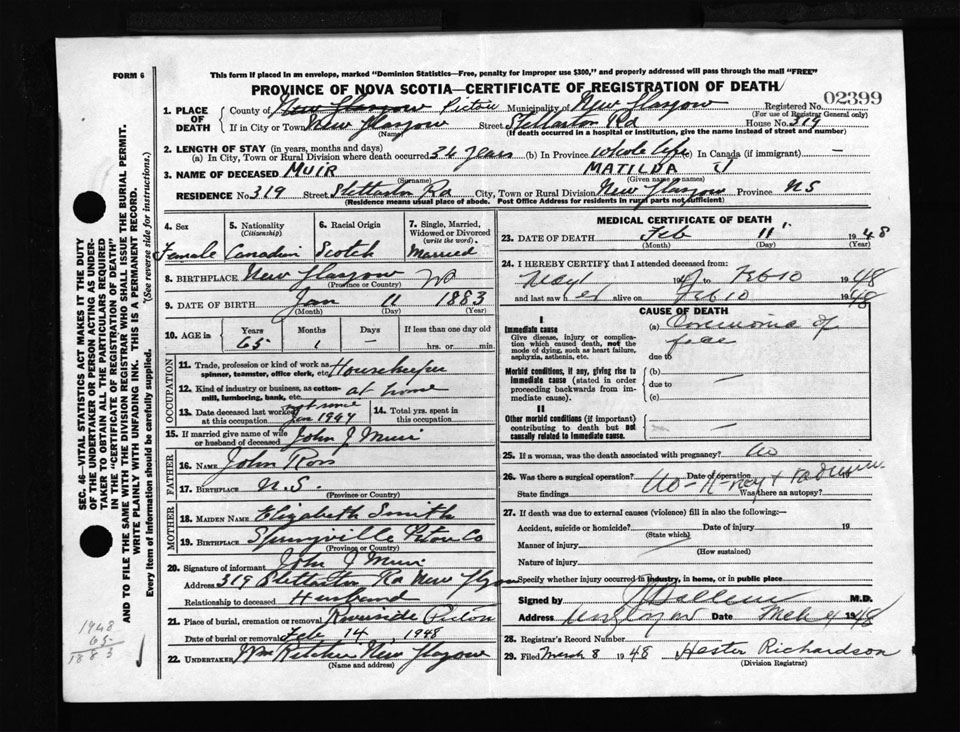 FORM 6
This form if placed in an envelope, marked "Dominion Statistics—Free, penalty for improper use $300," and properly addressed will pass through the mail "FREE"
PROVINCE OF NOVA SCOTIA—CERTIFICATE OF REGISTRATION OF DEATH
02399
1. PLACE OF DEATH County of New Glasgow Pictou Municipality of New Glasgow Registered No.
(For use of Registrar General only)
If in City or Town New Glasgow Street Stellarton Rd House No. 319
(Name) (If death occurred in a hospital or institution, give the name instead of street and number)
2. LENGTH OF STAY (in years, months and days)
(a) In City, Town or Rural Division where death occurred 34 years (b) In Province whole life (c) In Canada (if immigrant) —
3. NAME OF DECEASED MUIR MATILDA J
(Surname) (Given name or names)
RESIDENCE No 319 Street Stellarton Rd City, Town or Rural Division New Glasgow Province NS
(Residence means usual place of abode. Post Office Address for residents in rural parts not sufficient)
4. Sex 5. Nationality (Citizenship) 6. Racial Origin 7. Single, Married, Widowed or Divorced (write the word)
Female Canadian Scotch Married
8. BIRTHPLACE New Glasgow NS
(Province or Country)
9. DATE OF BIRTH Jan 11 1883
(Month) (Day) (Year)
10. AGE in Years Months Days If less than one day old
65 1 – hrs. or min.
OCCUPATION
11. Trade, profession or kind of work as spinner, teamster, office clerk, etc. Housekeeper
12. Kind of industry or business, as cotton-mill, lumbering, bank, etc. at home
13. Date deceased last worked at this occupation Jan 1947 14. Total yrs. spent in this occupation
15. If married give name of wife or husband of deceased John J Muir
FATHER
16. NAME John Ross
17. BIRTHPLACE N.S.
(Province or Country)
MOTHER
18. MAIDEN NAME Elizabeth Smith
19. BIRTHPLACE Springville Pictou Co
(Province or Country)
20. Signature of informant John J Muir
Address 319 Stellarton Rd New Glasgow
Relationship to deceased Husband
21. Place of burial, cremation or removal Riverside Pictou
Date of burial or removal Feb 14 1948
22. UNDERTAKER Wm Ritchie New Glasgow
(Name and address)
MEDICAL CERTIFICATE OF DEATH
23. DATE OF DEATH Feb 11 1948
(Month) (Day) (Year)
24. I HEREBY CERTIFY that I attended deceased from:
May 1947 to Feb 10 1948
and last saw her alive on Feb 10 1948
CAUSE OF DEATH
I
Immediate cause
Give disease, injury or complication which caused death, not the mode of dying, such as heart failure, asphyxia, asthenia, etc.
(a) Carcinoma of face
due to
Morbid conditions, if any, giving rise to immediate cause (stated in order proceeding backwards from immediate cause).
(b) —
due to
(c)
II
Other morbid conditions (if important) contributing to death but not causally related to immediate cause.
— —
25. If a woman, was the death associated with pregnancy? No
26. Was there a surgical operation? No - X-ray & Radium Date of operation
State findings Was there an autopsy?
27. If death was due to external causes (violence) fill in also the following—
Accident, suicide or homicide? Date of injury 19
(State which)
Manner of injury
(How sustained)
Nature of injury
Specify whether injury occurred in industry, in home, or in public place
Signed by M.D.
Address New Glasgow Date Mch 4 1948
28. Registrar's Record Number
29. Filed March 8 1948 Hester Richardson
(Division Registrar)
SEC. 46—VITAL STATISTICS ACT MAKES IT THE DUTY
OF THE UNDERTAKER OR PERSON ACTING AS UNDER-
TAKER TO OBTAIN ALL THE PARTICULARS REQUIRED
IN THE "CERTIFICATE OF REGISTRATION OF DEATH"
AND TO FILE THE SAME WITH THE DIVISION REGISTRAR WHO SHALL ISSUE THE BURIAL PERMIT.
WRITE PLAINLY WITH UNFADING INK. THIS IS A PERMANENT RECORD.
Every item of information should be carefully supplied. (See reverse side for instructions.)
1948
65
1883